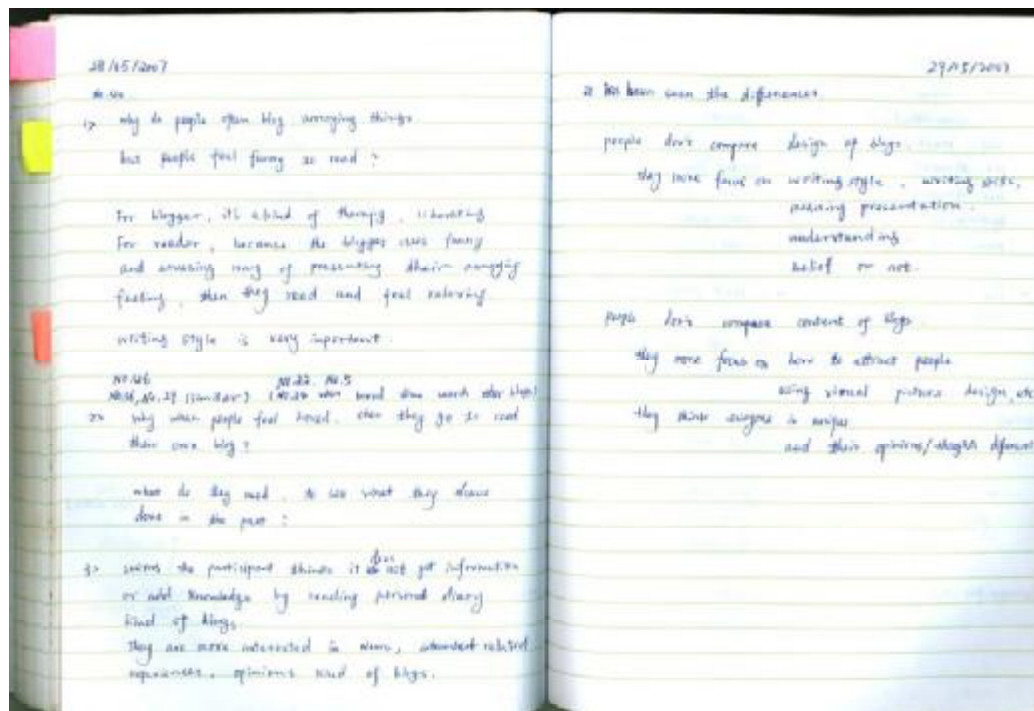 28/05/2007
1> why do people often blog annoying things
but people feel funny to read ?
For blogger, it's a kind of therapy, liberating
For reader, because the blogger uses funny
and amusing way of presenting their annoying
feeling, then they read and feel relaxing.
writing style is very important.
No.46 No.22. No.5
2> why when people feel bored, then they go to read
their own blog ?
what do they read, to see what they have
done in the past ?
does
3> seems the participant thinks it not get information
or add knowledge by reading personal diary
kind of blogs.
They are more interested in news, related
experiences, opinions kind of blogs.
29/05/2007
It has been seen the differences.
people don't compare design of blogs.
they more focus on writing style, writing skills,
presentation.
understanding
belief or not.
people don't compare content of blogs.
they more focus on how to attract people
using visual picture design, etc
they think everyone is unique
and their opinions/thoughts different